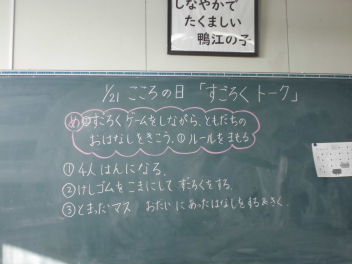 しなやかで
たくましい
鴨江の子
1/21 こころの日 「すごろくトーク」
め ①すごろくゲームをしながら、ともだちの
おはなしをきこう。①ルールをまもる
①4人はんになる。
②けしゴムをこまにして すごろくをする。
③とまったマス おだいにあったはなしをする